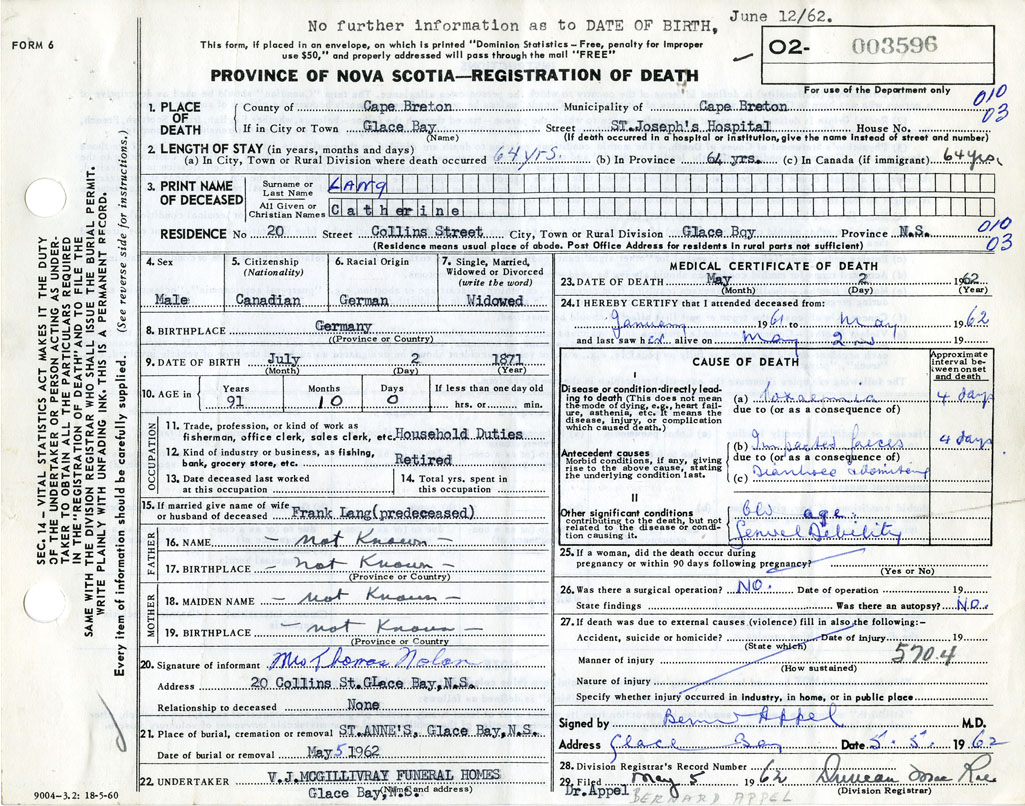 No further information as to DATE OF BIRTH, June 12/62.
FORM 6
This form, if placed in an envelope, on which is printed "Dominion Statistics – Free, penalty for improper
use $50," and properly addressed will pass through the mail "FREE"
O2- 003596
PROVINCE OF NOVA SCOTIA—REGISTRATION OF DEATH
For use of the Department only
010
03
1. PLACE OF DEATH
County of Cape Breton Municipality of Cape Breton
If in City or Town Glace Bay Street ST.Joseph's Hospital House No.
(Name) (If death occurred in a hospital or institution, give the name instead of street and number)
2. LENGTH OF STAY (in years, months and days)
(a) In City, Town or Rural Division where death occurred 64 yrs. (b) In Province 64 yrs. (c) In Canada (if immigrant) 64 yrs.
3. PRINT NAME OF DECEASED
Surname or Last Name LANG
All Given or Christian Names Catherine
RESIDENCE No 20 Street Collins Street City, Town or Rural Division Glace Bay Province N.S.
(Residence means usual place of abode. Post Office Address for residents in rural parts not sufficient)
010
03
4. Sex
Male
5. Citizenship
(Nationality)
Canadian
6. Racial Origin
German
7. Single, Married,
Widowed or Divorced
(write the word)
Widowed
8. BIRTHPLACE Germany
((Province or Country)
9. DATE OF BIRTH July 2 1871
(Month) (Day) (Year)
10. AGE in
Years Months Days If less than one day old
91 10 0 hrs. or min.
OCCUPATION
11. Trade, profession, or kind of work as
fisherman, office clerk, sales clerk, etc. Household Duties
12. Kind of industry or business, as fishing,
bank, grocery store, etc. Retired
13. Date deceased last worked
at this occupation
14. Total yrs. spent in
this occupation
15. If married give name of wife
or husband of deceased Frank Lang(predeceased)
FATHER
16. NAME – not Known –
17. BIRTHPLACE – not Known –
(Province or Country)
MOTHER
18. MAIDEN NAME – not Known –
19. BIRTHPLACE – not Known –
(Province or Country
20. Signature of informant Mrs Thomas Nolan
Address 20 Collins St.Glace Bay,N.S.
Relationship to deceased None
21. Place of burial, cremation or removal ST.ANNE'S, Glace Bay,N.S.
Date of burial or removal May 5 1962
22. UNDERTAKER V.J.MCGILLIVRAY FUNERAL HOMES
(Name and address)
Glace Bay,N.S.
MEDICAL CERTIFICATE OF DEATH
23. DATE OF DEATH May 2 1962
(Month) (Day) (Year)
24. I HEREBY CERTIFY that I attended deceased from:
January 1961 to May 1962
and last saw her alive on May 2nd 19
CAUSE OF DEATH
Approximate
interval be-
tween onset
and death
I
Disease or condition directly lead-
ing to death (This does not mean
the mode of dying, e.g., heart fail-
ure, asthenia, etc. It means the
disease, injury, or complication
which caused death.)
(a) toxaemia 4 days
due to (or as a consequence of)
Antecedent causes
Morbid conditions, if any, giving
rise to the above cause, stating
the underlying condition last.
(b) Impacted faeces 4 days
due to (or as a consequence of)
(c) Diarrhoea & Vomiting
II
Other significant conditions
contributing to the death, but not
related to the disease or condi-
tion causing it.
Old age.
General Debility
25. If a woman, did the death occur during
pregnancy or within 90 days following pregnancy?
(Yes or No)
26. Was there a surgical operation? NO. Date of operation 19
State findings Was there an autopsy? NO.
27. If death was due to external causes (violence) fill in also the following:–
Accident, suicide or homicide? Date of injury 19
(State which)
Manner of injury 570.4
(How sustained)
Nature of injury
Specify whether injury occurred in industry, in home, or in public place
Signed by Bernard Appel M.D.
Address Glace Bay Date 5.5. 1962
28. Division Registrar's Record Number
29. Filed May 5 1962 Duncan
(Division Registrar)
Dr.Appel BERNARD APPEL
SEC. 114 – VITAL STATISTICS ACT MAKES IT THE DUTY
OF THE UNDERTAKER OR PERSON ACTING AS UNDER-
TAKER TO OBTAIN ALL THE PARTICULARS REQUIRED
IN THE "REGISTRATION OF DEATH" AND TO FILE THE
SAME WITH THE DIVISION REGISTRAR WHO SHALL ISSUE THE BURIAL PERMIT.
WRITE PLAINLY WITH UNFADING INK. THIS IS A PERMANENT RECORD.
Every item of information should be carefully supplied. (See reverse side for instructions.)
9004–3.2: 18-5-60